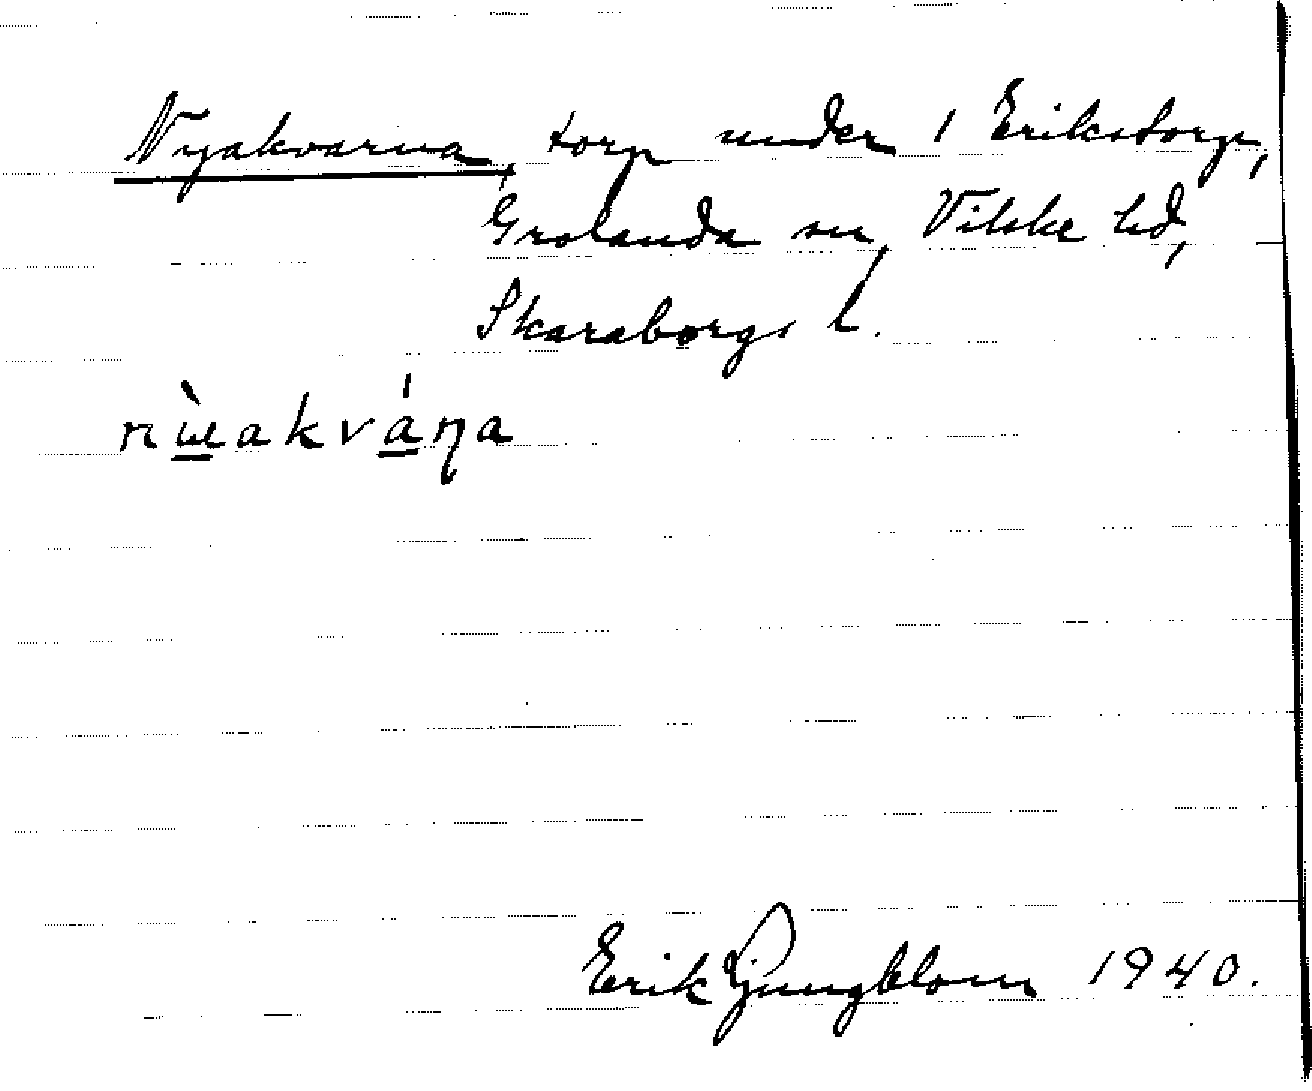 Nyakvarna, torp under 1 Erikstorp,
Grolanda sn, Vilske hd,
Skaraborgs l.
nɯ̲̀akvá̲ɳa
Erik Ljungblom 1940.